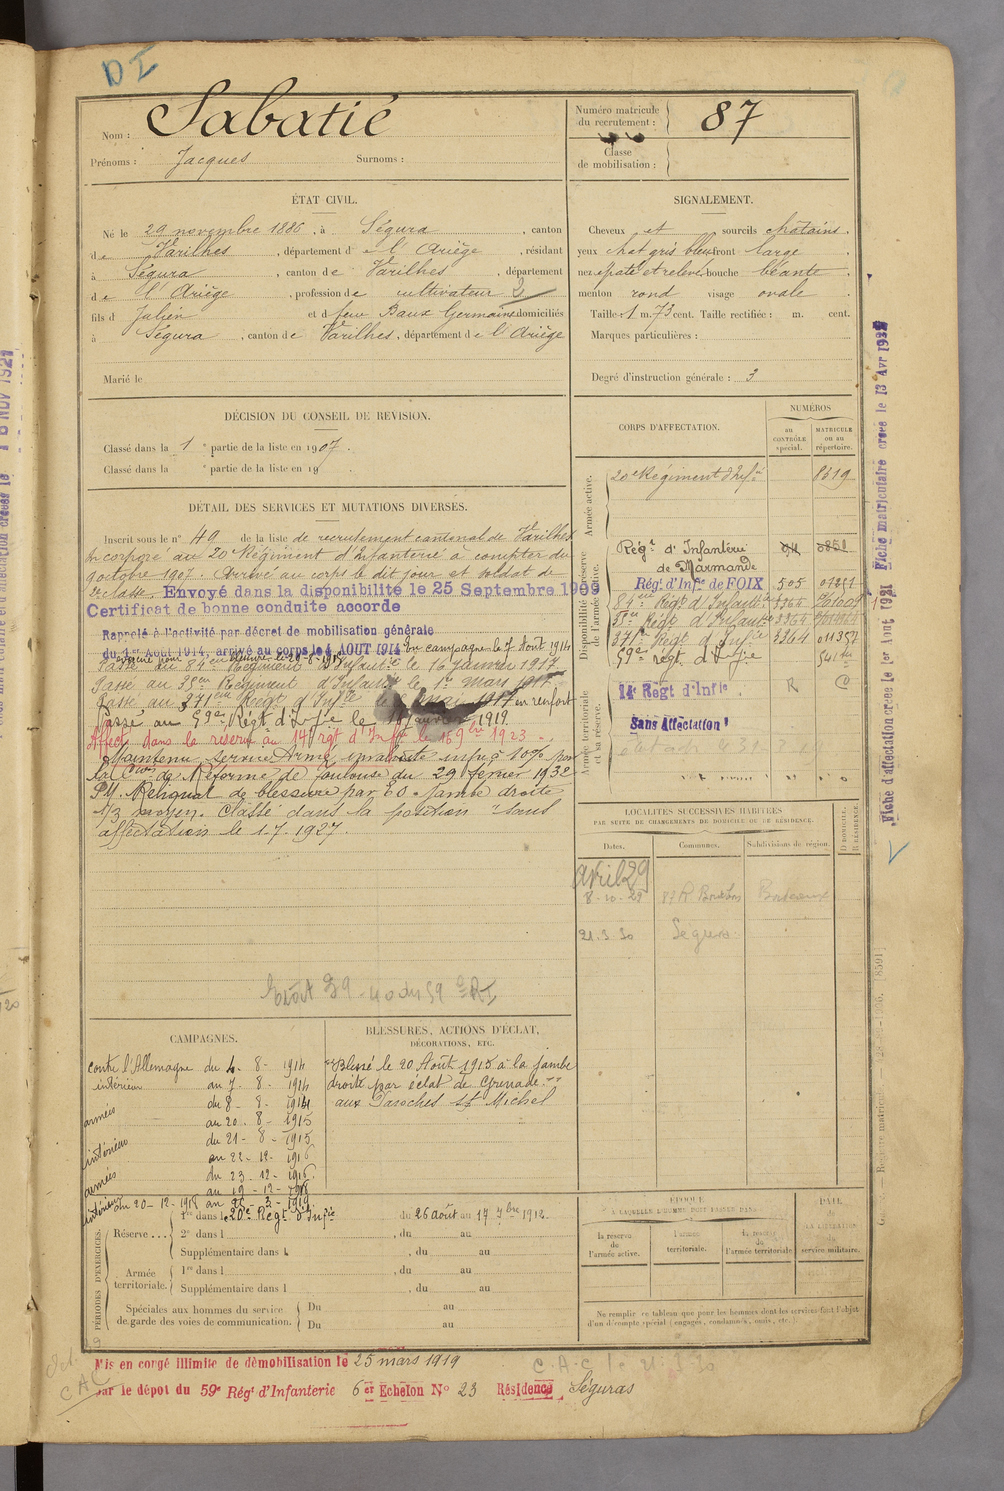 DI
Nom : Sabatié
Prénoms : Jacques Surnoms :
Numéro matricule du recrutement : 87
Classe de mobilisation :
ÉTAT CIVIL.
Né le 29 novembre 1886, à Ségura, canton
de Varilhes, département de l'Ariège, résidant
à Ségura, canton de Varilhes, département
de l'Ariège, profession de cultivateur 2
fils d Julien et d feu Baux Germaine domiciliés
à Ségura, canton de Varilhes, département de l'Ariège
Marié le
SIGNALEMENT.
Cheveux et sourcils châtains.
yeux chat gris bleu front large
nez épaté et relevé bouche béante.
menton rond visage ovale.
Taille 1 m. 73 cent. Taille rectifiée : m. cent.
Marques particulières :
Degré d'instruction générale : 3
DÉCISION DU CONSEIL DE REVISION.
Classé dans la 1e partie de la liste en 1907.
Classé dans la e partie de la liste en 19 .
DÉTAIL DES SERVICES ET MUTATIONS DIVERSES.
Inscrit sous le n° 49 de la liste de recrutement cantonal de Varilhes
Incorporé au 20e Régiment d'Infanterie à compter du
9 octobre 1907. Arrivé au corps le dit jour et soldat de
2e classe. Envoyé dans la disponibilité le 25 Septembre 1909
Certificat de bonne conduite accordé
Rappelé à l'activité par décret de mobilisation générale
du 1er Août 1914, arrivé au corps le 4 AOUT 1914 En campagne le 7 Août 1914
Passé au 84em Régiment d'Infantie le 16 janvier 1917
Passé au 35em Régiment d'Infantie le 1er Mars 1917
Passé au 371em Régt d'Infie le mai 1917 en renfort
Passé au 59e Régt d'Infie le janvier 1919
Affecté dans la réserve au 14e rgt d'Infie le 15 9bre 1923.
Maintenu service Armé, invalidité infre à 10% par
la Cion de Réforme de Toulouse du 29 février 1932
P.V. Reliquat de blessure par E O jambe droite
1/3 moyen. Classé dans la position "sans
affectation le 1-7-1927.
CORPS D'AFFECTATION.
NUMÉROS
au CONTRÔLE spécial.
MATRICULE ou au répertoire.
Armée active.
20e Régiment d'Infie 8319
Disponibilité et réserve de l'armée active.
Régt d'Infanterie
de Marmande
Régt d'Infie de FOIX 505
84em Régt d'Infantie 3364
35em Régt d'Infantie 3364
371e Régt d'Infie 3364 011357
59e régt d'Infie
Armée territoriale et sa réserve.
14e Régt d'Infie
Sans Affectation
LOCALITÉS SUCCESSIVES HABITÉES
PAR SUITE DE CHANGEMENTS DE DOMICILE OU DE RÉSIDENCE.
Dates. Communes. Subdivisions de région. D DOMICILE. R RÉSIDENCE.
avril 29
8-10-29 87 R Bordeaux
21.3.30 Ségura.
CAMPAGNES.
contre l'Allemagne du 4-8-1914
intérieur au 7-8-1914
armées du 8-8-1914
au 20-8-1915
intérieur du 21-8-1915
au 22-12-1916
armées du 23-12-1916
au 19-12-1918
intérieur du 20-12-1918 au 3-1919
BLESSURES, ACTIONS D'ÉCLAT,
DÉCORATIONS, ETC.
Blessé le 20 Août 1915 à la jambe
droite par éclat de Grenade
aux Paroches St Michel
PÉRIODES D'EXERCICES.
Réserve.... 1re dans le 20e Régt d'Infie du 26 août au 17 7bre 1912
2e dans l , du au
Supplémentaire dans l , du au
Armée territoriale. 1re dans l , du au
Supplémentaire dans l , du au
Spéciales aux hommes du service
de garde des voies de communication. Du au
Du au
ÉPOQUE
À LAQUELLE L'HOMME DOIT PASSER DANS
la réserve de l'armée active.
l'armée territoriale.
la réserve de l'armée territoriale
DATE
DE LA LIBÉRATION
du service militaire.
Ne remplir ce tableau que pour les hommes dont les services font l'objet
d'un décompte spécial (engagés, condamnés, omis, etc.)
Mis en congé illimité de démobilisation le 25 mars 1919
par le dépôt du 59e Régt d'Infanterie 6er Echelon No 23 Résidence Séguras
C.A.C. le 21.3.30
CAC
Fiche d'affectation créée le 1er Aout 1921
Fiche matriculaire créée le 13 Avr 1932